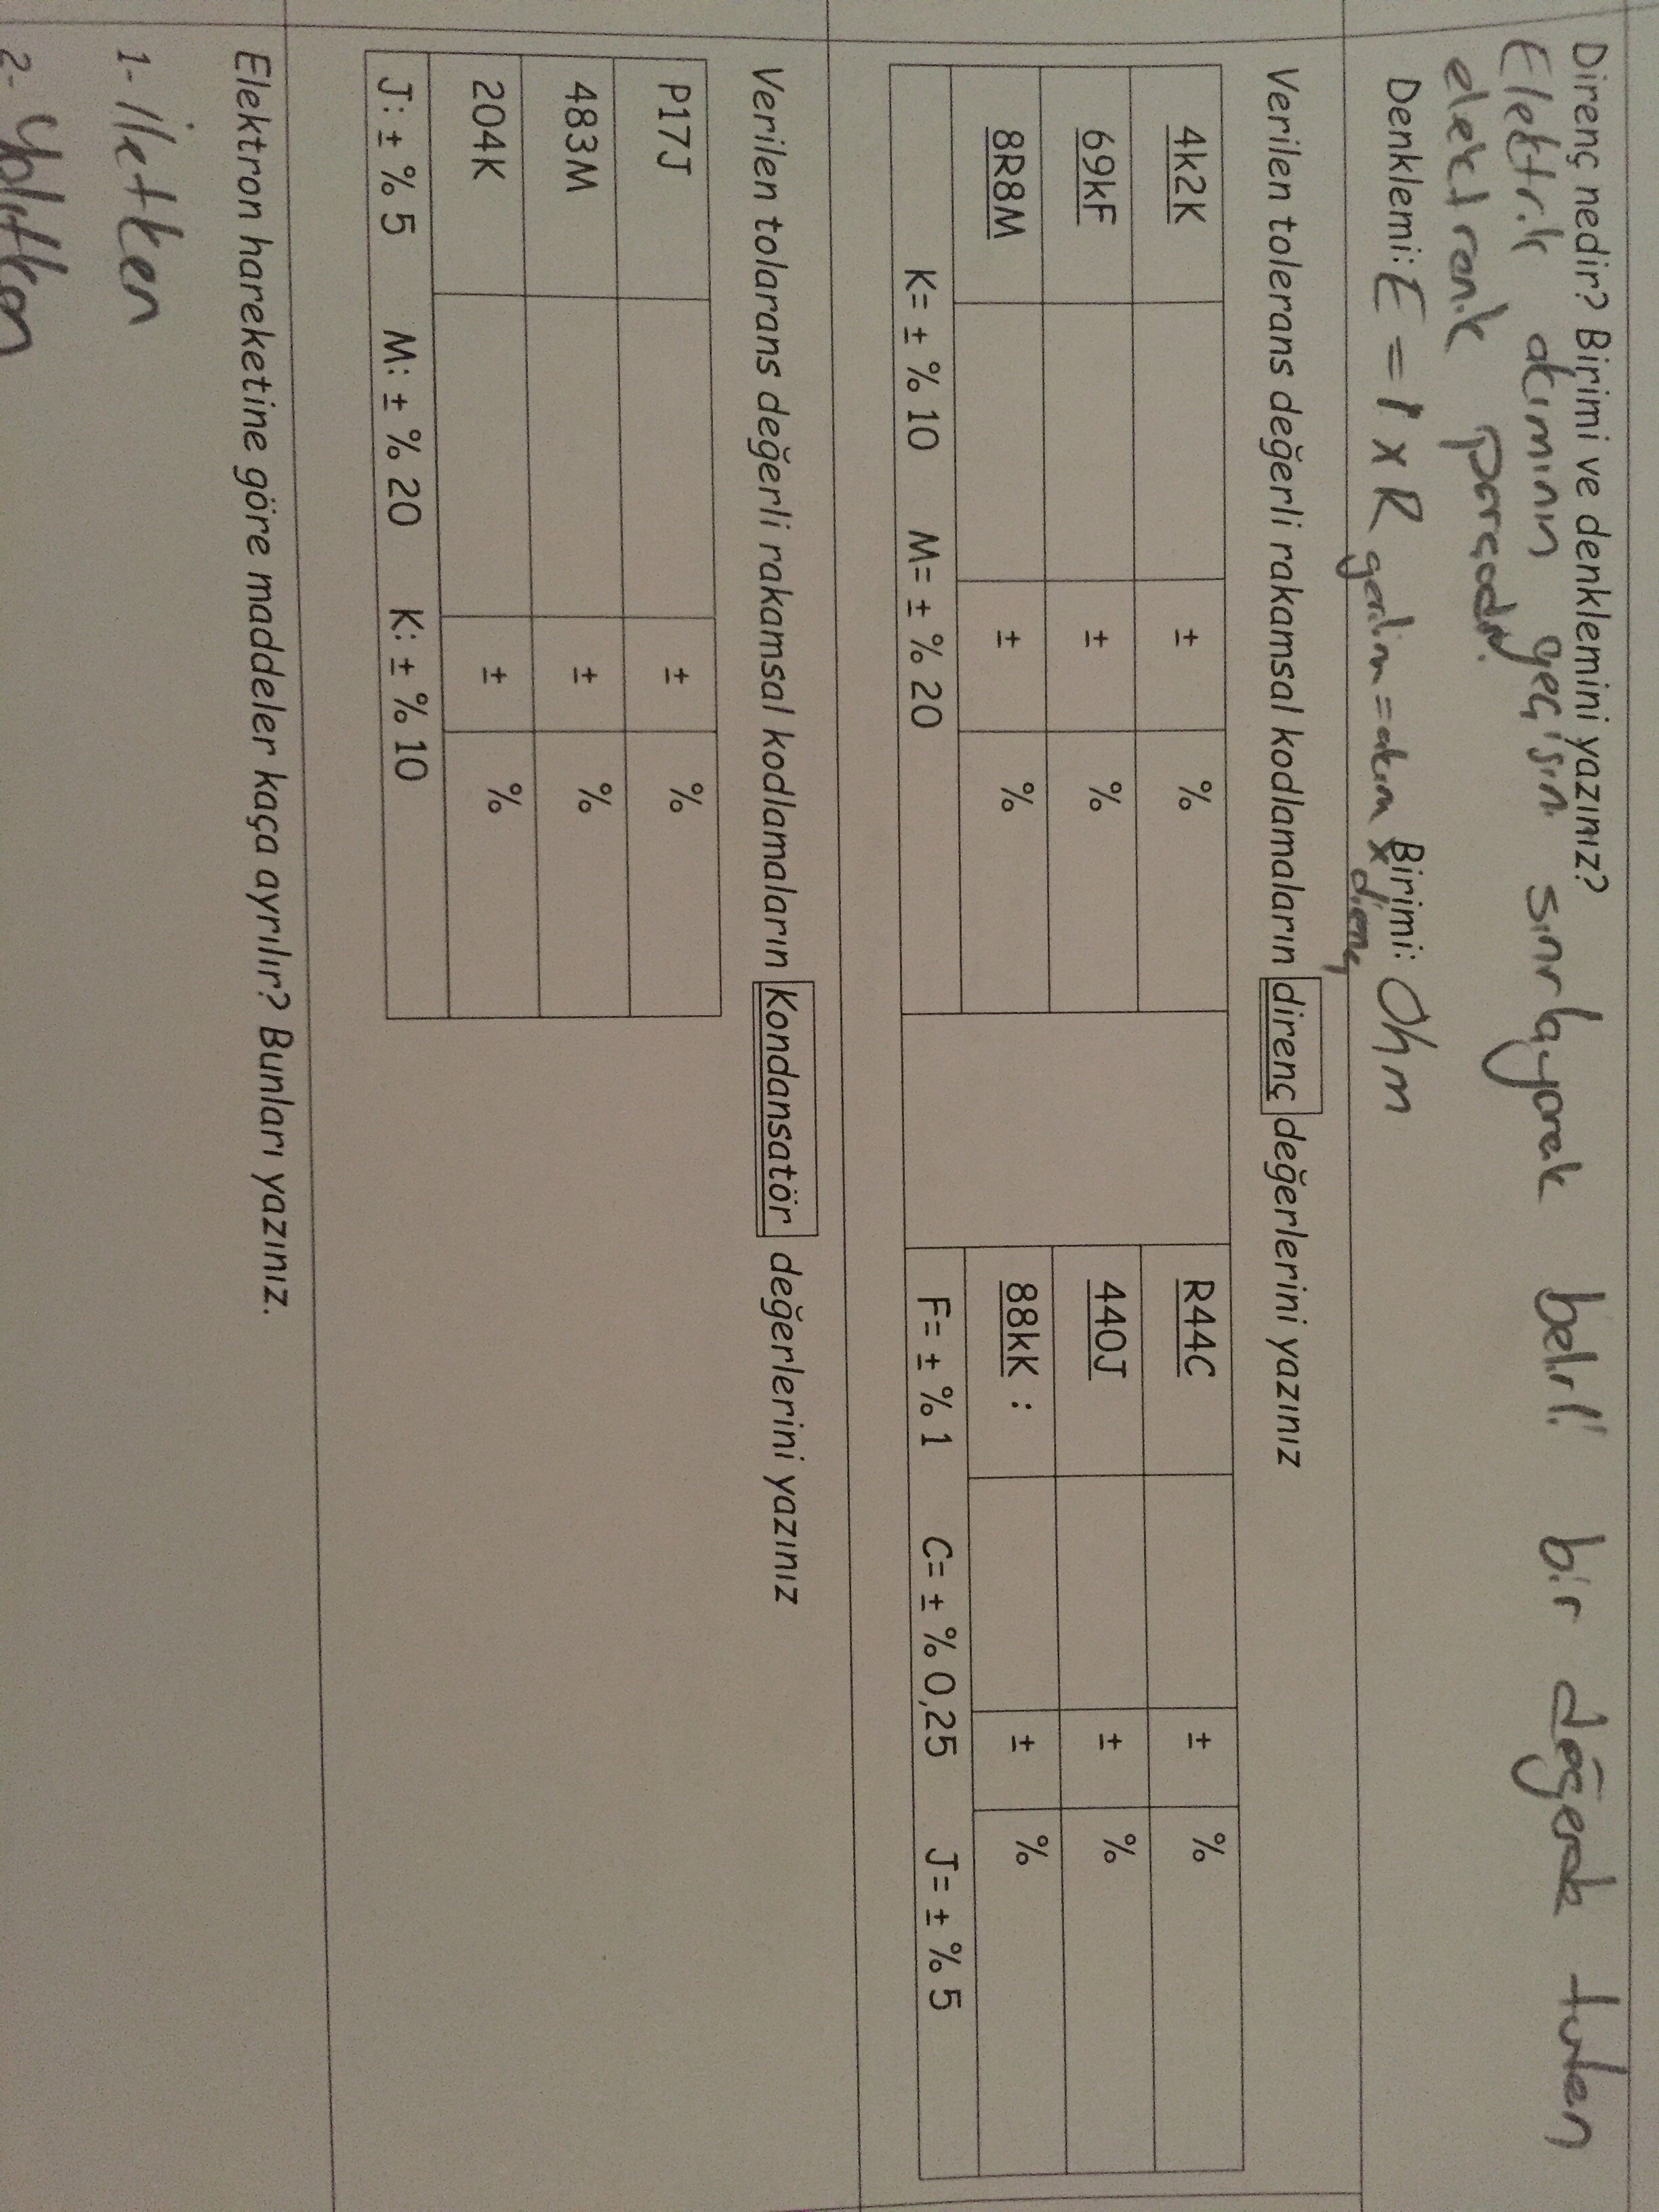 Direnç nedir? Birimi ve denklemini yazınız?
Elektrik akımının geçişini sınırlayarak belirli bir değerde tutan
elektronik parçadır.
Denklemi: E = I x R Birimi: Ohm
gerilim = akım x direnç
Verilen tolerans değerli rakamsal kodlamaların direnç değerlerini yazınız
4k2K ± % R44C ± %
69kF ± % 440J ± %
8R8M ± % 88kK : ± %
K= ± % 10 M= ± % 20 F= ± % 1 C= ± % 0,25 J= ± % 5
Verilen tolarans değerli rakamsal kodlamaların Kondansatör değerlerini yazınız
P17J ± %
483M ± %
204K ± %
J: ± % 5 M: ± % 20 K: ± % 10
Elektron hareketine göre maddeler kaça ayrılır? Bunları yazınız.
1- İletken
2- Yalıtkan